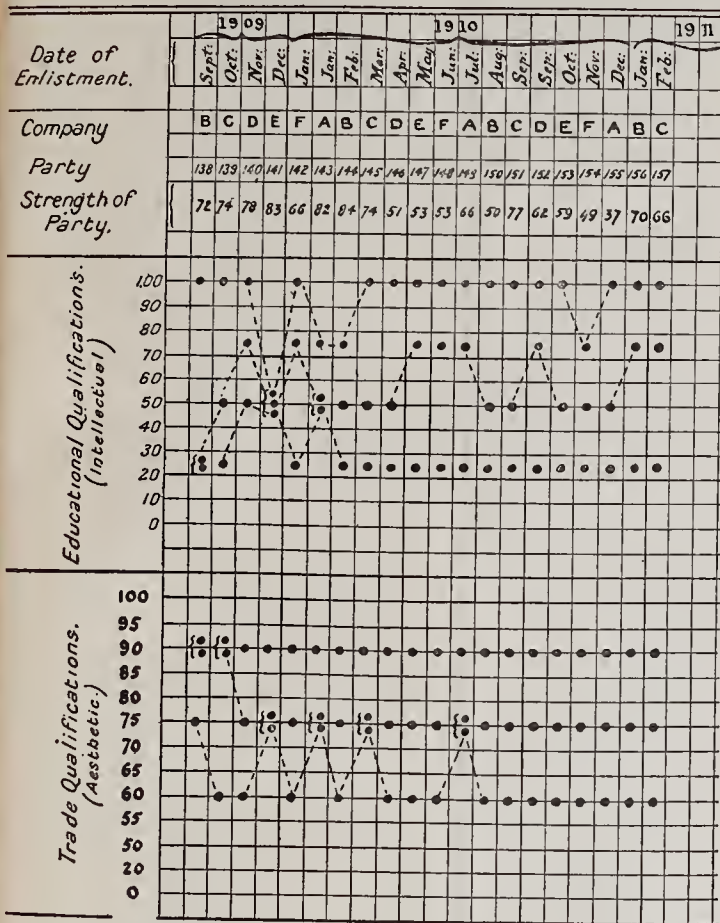 1909 1910 1911
Date of Enlistment. Sept: Oct: Nov: Dec: Jan: Jan: Feb: Mar: Apr: May Jun: Jul: Aug: Sep: Sep: Oct: Nov: Dec: Jan: Feb:
Company B C D E F A B C D E F A B C D E F A B C
Party 138 139 140 141 142 143 144 145 146 147 148 149 150 151 152 153 154 155 156 157
Strength of Party. 72 74 78 83 66 82 84 74 51 53 53 66 50 77 62 59 49 37 70 66
Educational Qualifications.
(Intellectual)
1,00
90
80
70
60
50
40
30
20
10
0
Trade Qualifications.
(Aesthetic.)
100
95
90
85
80
75
70
65
60
55
50
20
0